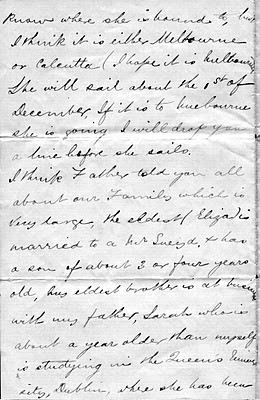 Know where she is bound to, but
I think it is either Melbourne
or Calcutta (I hope it is Melbourne)
She will sail about the 1st of
December, If it is to Melbourne
she is going I will drop you
a line before she sails.
I think Father told you all
about our Family which is
Very large, the eldest (Eliza) is
married to a Mr & has
a son of about 3 or four years
old, her eldest brother is at business
with my father, Sarah who is
about a year older than myself
is studying in the Queens Univer
sity, Dublin, where she has been